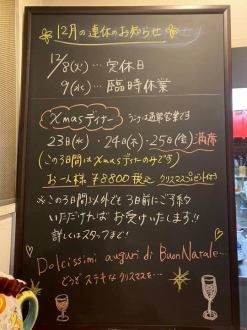 12月の連休のお知らせ
12/8(火)…定休日
9(水)…臨時休業
Xmasディナー ランチは通常営業です
23日(水)・24日(木)・25日(金)満席
(この3日間はXmasディナーのみです)
お一人様 ¥8800税込 クリスマスプレゼント付
※この3日間以外でも3日前にご予約
いただければお受けいたします!!
詳しくはスタッフまで!
Dolcissimi auguri di Buon Natale…
どうぞステキなクリスマスを…